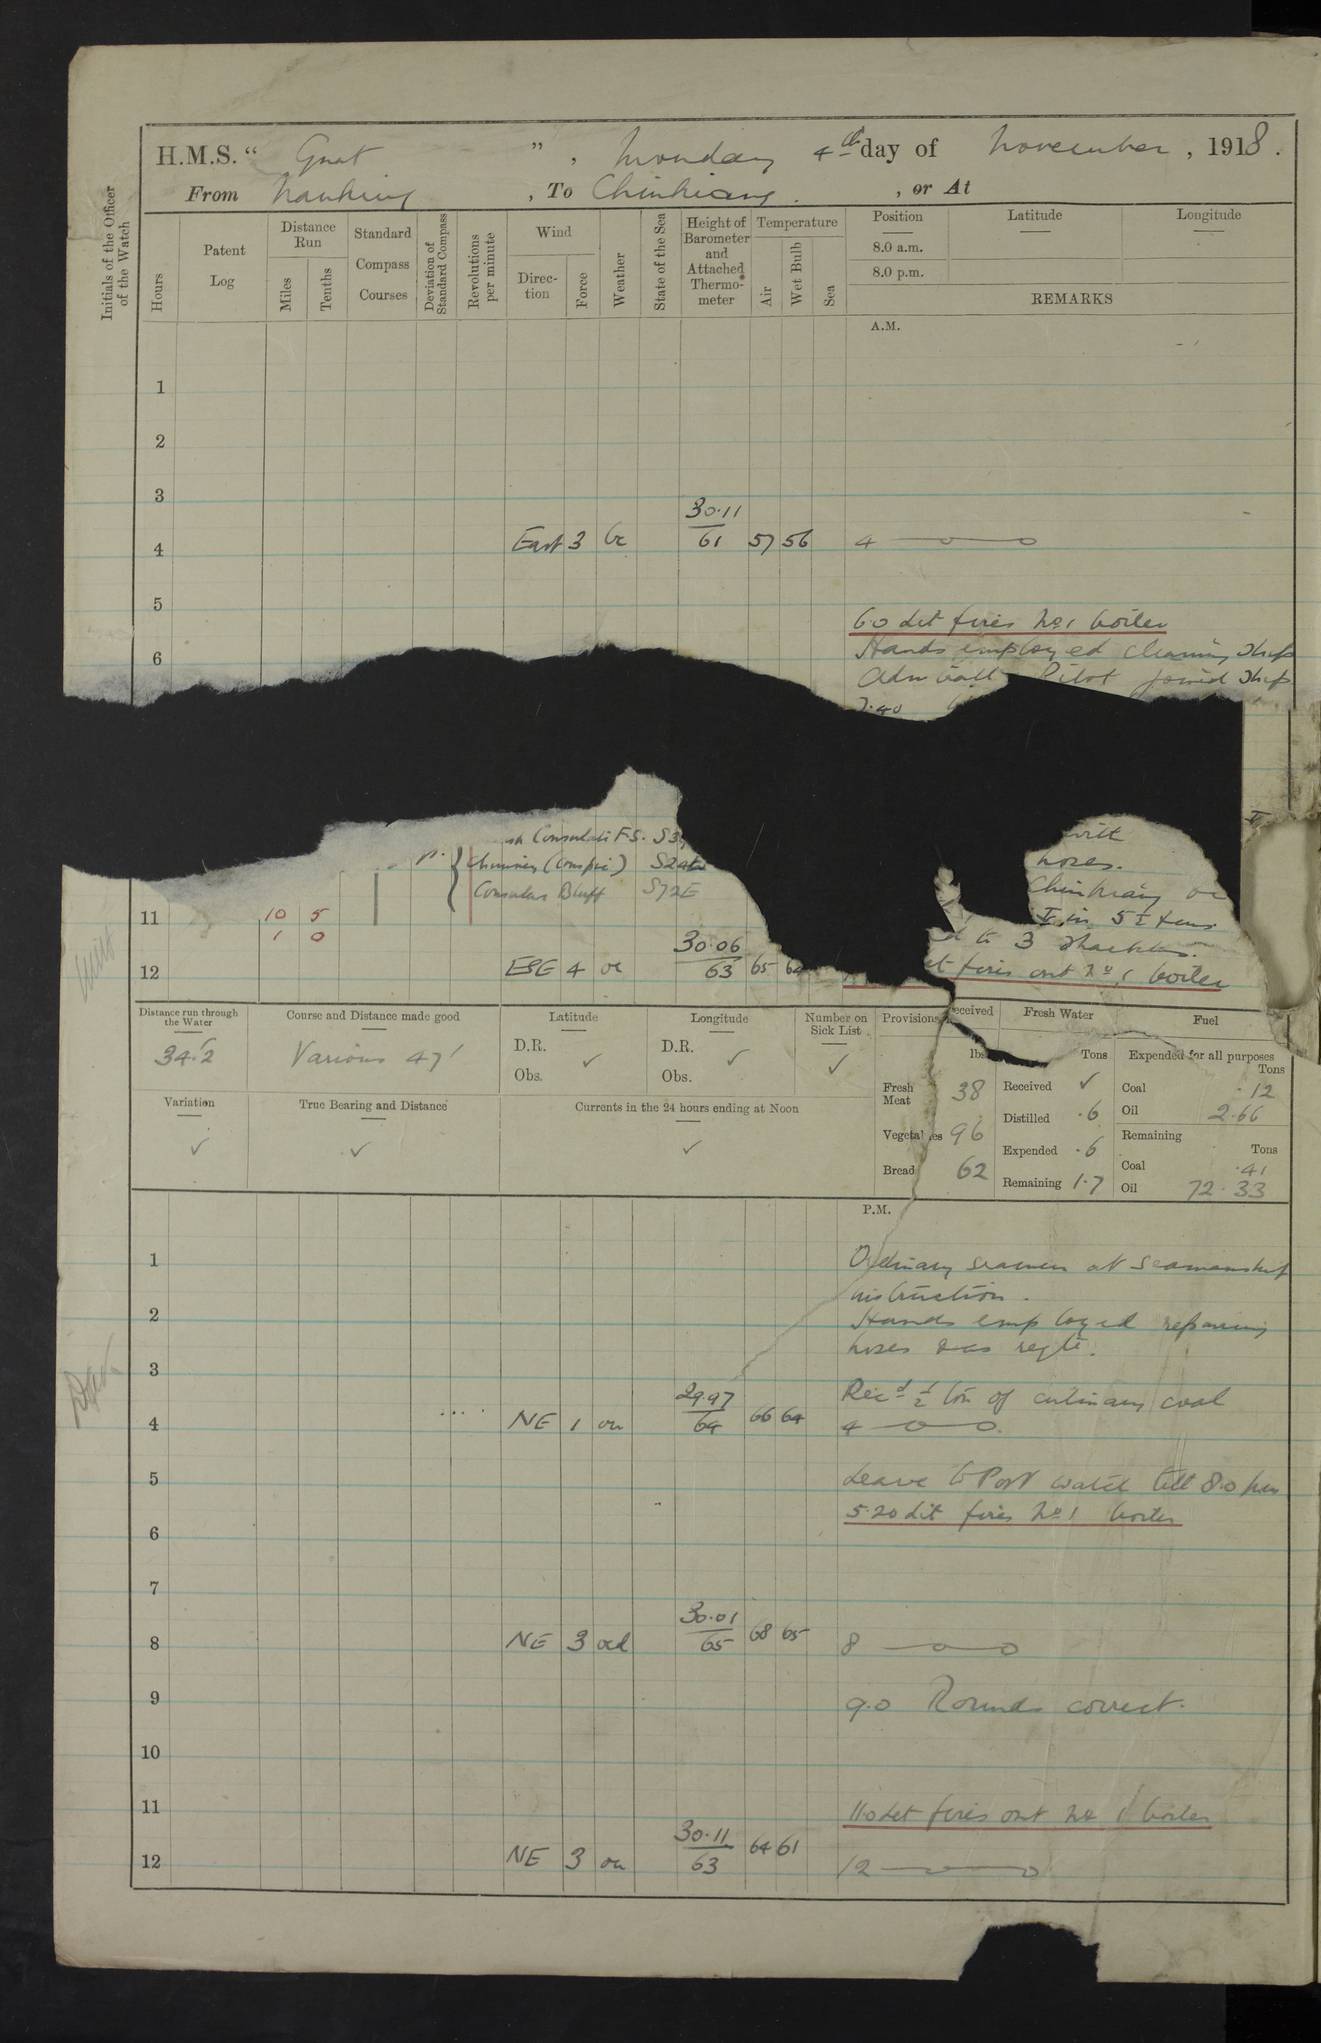 H.M.S. “ Gnat ” , Monday 4th day of November , 1918 .
From Nanking , To Chinkiang . , or At
Initials of the Officer of the Watch
Hours
Patent Log
Distance Run
Miles
Tenths
Standard Compass Courses
Deviation of Standard Compass
Revolutions per minute
Wind
Direc- tion
Force
Weather
State of the Sea
Height of Barometer and Attached Thermo- meter
Temperature
Air
Wet Bulb
Sea
Position
8.0 a.m.
8.0 p.m.
Latitude
Longitude
REMARKS
A.M.
1
2
3
30.11
4 East 3 bc 61 57 56 4
5
6.0 Lit fires No 1 boiler
6 Hands employed cleaning ship
Pilot joined ship
7.40
Consulate F.S. S3
with
Chimney (conspic)
hoses.
Consular Bluff S72E
Chinkiang
11 10 5
in 5
1 0
30.06
to 3 shackles.
12 ESE 4 oc 63 65 64
fires out No 1 boiler
Distance run through the Water
34.2
Course and Distance made good
Various 47'
Latitude
D.R. ✓
Obs.
Longitude
D.R. ✓
Obs.
Number on Sick List
✓
Provisions received
lbs
Fresh Meat 38
Vegetables 96
Bread 62
Fresh Water
Tons
Received ✓
Distilled .6
Expended .6
Remaining 1.7
Fuel
Expended for all purposes
Tons
Coal .12
Oil 2.66
Remaining
Tons
Coal .41
Oil 72.33
Variation
✓
True Bearing and Distance
✓
Currents in the 24 hours ending at Noon
✓
P.M.
1 Ordinary seamen at seamanship
instruction.
2 Hands employed repairing
hoses & as reqte.
3
29.97 Recd ½ ton of culinary coal
4 NE 1 64 66 64 4
5 Leave to Port watch till 8.0 pm
5.20 Lit fires No 1 boiler
6
7
30.01
8 NE 3 ocd 65 68 65 8
9 9.0 Rounds correct.
10
11 11.0 Let fires out No 1 boiler
30.11
12 NE 3 63 64 61 12